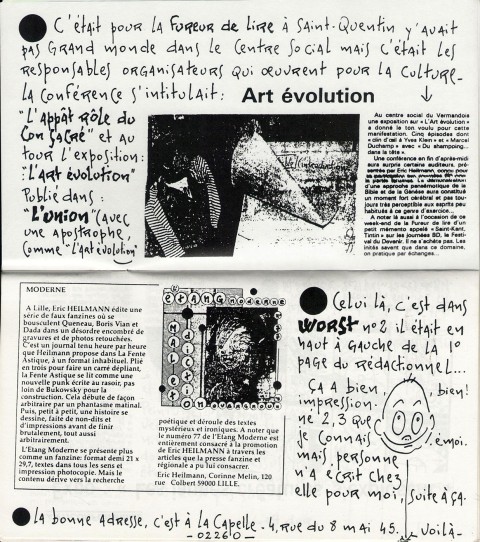 C'était pour la fureur de lire à Saint-Quentin y'avait
pas Grand monde dans le Centre Social mais c'était les
responsables organisateurs qui œuvrent pour la culture-
la conférence s'intitulait :
"L'appât rôle du
Con Sacré" et au
tour l'exposition :
"L'art évolution"
Publié dans :
"L'union" (avec
une apostrophe,
comme "L'art évolution"
Art évolution
Au centre social du Vermandois
une exposition sur « L'Art évolution »
a donné le ton voulu pour cette
manifestation. Cinq épisodes dont
« clin d'œil à Yves Klein » et « Marcel
Duchamp » avec « Du shampoing...
dans la tête ».
Une conférence en fin d'après-midi
aura surpris certains auditeurs, pré-
sentée par Eric Heilmann, connu pour
d'une approche panséniotique de la
Bible et de la Genèse aura constitué
un moment fort cérébral et pas tou-
jours très perceptible aux esprits peu
habitués à ce genre d'exercice...
A noter là aussi à l'occasion de ce
week-end de la Fureur de lire d'un
petit mémento appelé « Saint-Kant,
Tintin » sur les journées BD, le Festi-
val du Devenir. Il ne s'achète pas. Les
initiés savent que dans ce domaine,
on pratique par échanges...
MODERNE
A Lille, Eric HEILMANN édite une
série de faux fanzines où se
bousculent Queneau, Boris Vian et
Dada dans un désordre encombré de
gravures et de photos retouchées.
C'est un journal tenu heure par heure
que Heilmann propose dans La Fente
Astique, à un format inhabituel. Plié
en trois pour faire un carré dépliant,
La Fente Astique se lit comme une
nouvelle punk écrite au rasoir, pas
loin de Bukowsky pour la
construction. Cela débute de façon
arbitraire par un phantasme matinal.
Puis, petit à petit, une histoire se
dessine, faite de non-dits et
d'impressions avant de finir
brutalement, tout aussi
arbitrairement.
L'Etang Moderne se présente plus
comme un fanzine: format demi 21 x
29,7, textes dans tous les sens et
impression photocopie. Mais le
contenu dérive vers la recherche
étang moderne
poétique et déroule des textes
mystérieux et ironiques. A noter que
le numéro 77 de l'Etang Moderne est
entièrement consacré à la promotion
de Eric HEILMANN à travers les
articles que la presse fanzine et
régionale a pu lui consacrer.
Eric Heilmann, Corinne Melin, 120
rue Colbert 59000 LILLE.
Celui là, c'est dans
WORST no2 il était en
haut à gauche de la 1°
page du rédactionnel...
ça a bien, bien!
impression.
ne 2,3 que
je connais émoi.
mais personne
n'a écrit chez
elle pour moi, suite à ça.
La bonne adresse, c'est à La Capelle. 4, rue du 8 mai 45. Voilà-
-02260-